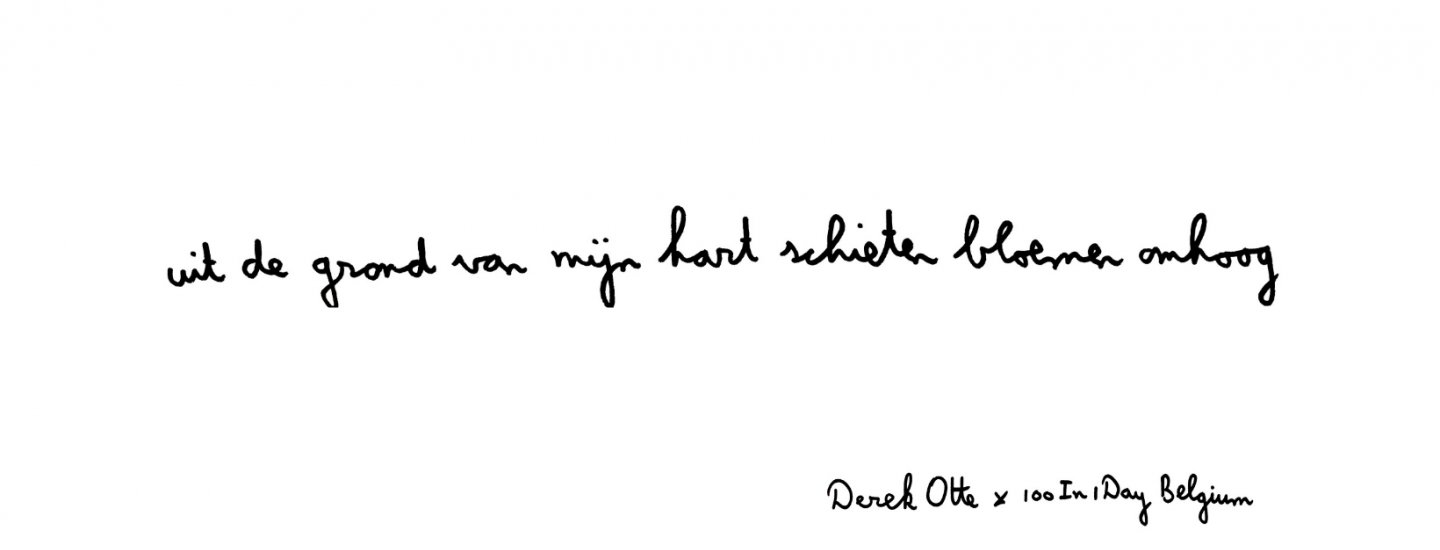 uit de grond van mijn hart schieten bloemen omhoog
Derek Otte x 100 In 1 Day Belgium